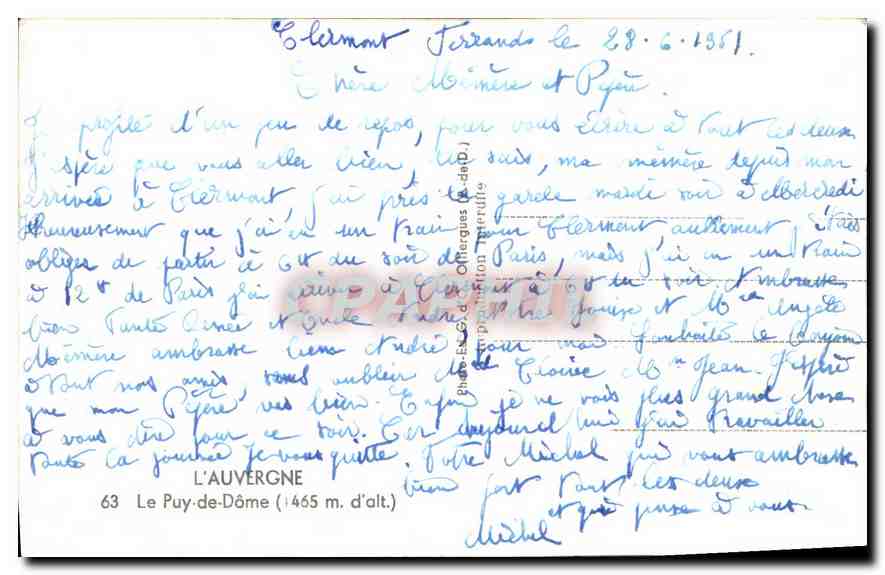 Clermont Ferrands le 28.6.1951.
Chère Mémère et Pépère.
Je profite d'un peu de repos, pour vous écrire à tout les deux
J'espère que vous aller bien, tu sais, ma mémère depuis mon
arrivés à Clermont, j'ai pris la garde mardi soir à Mercredi
Heureusement que j'ai eu un train pour Clermont autrement j'étais
obligés de partir à 6H du soir de Paris, mais j'ai eu un train
à 12H de Paris j'ai arrivé à Clermont à 6H du soir. Ambrasse
bien Tante et Oncle André, Louise et Angèle
Mémère ambrasse bien André, pour moi Souhaite le bonjour
à tout nos amis, sans oublier Mme Jean. J'espère
que mon Pépère vas bien. Enfin je ne vois plus grand chose
à vous dire pour ce soir. Car aujourd'hui j'ai travailler
toute la journée je vous quitte. Votre Michel qui vous ambrasse
bien fort tout les deux
et qui pense à vous
Michel
L'AUVERGNE
63 Le Puy-de-Dôme (1465 m. d'alt.)
Photo-Ed. G. d'O., Olliergues (P.-de-D.)
Reproduction Interdite
CPARAMA